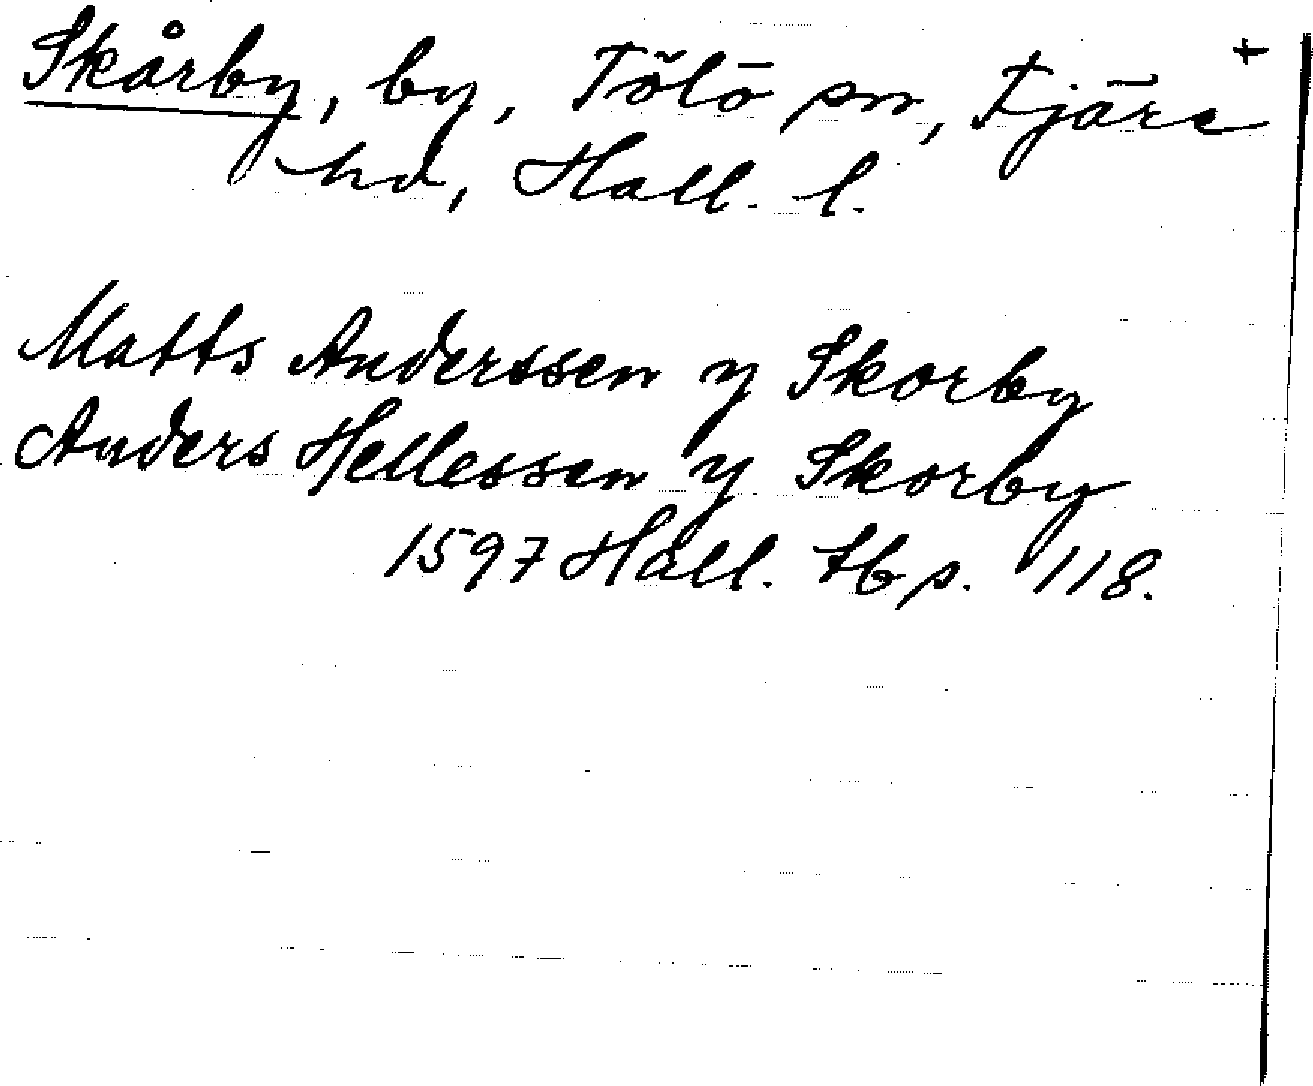 Skårby, by, Tölö sn, Fjäre +
hd, Hall. l.
Matts Anderssen y Skorby
Anders Hellessen y Skorby
1597 Hall. tb p. 118.